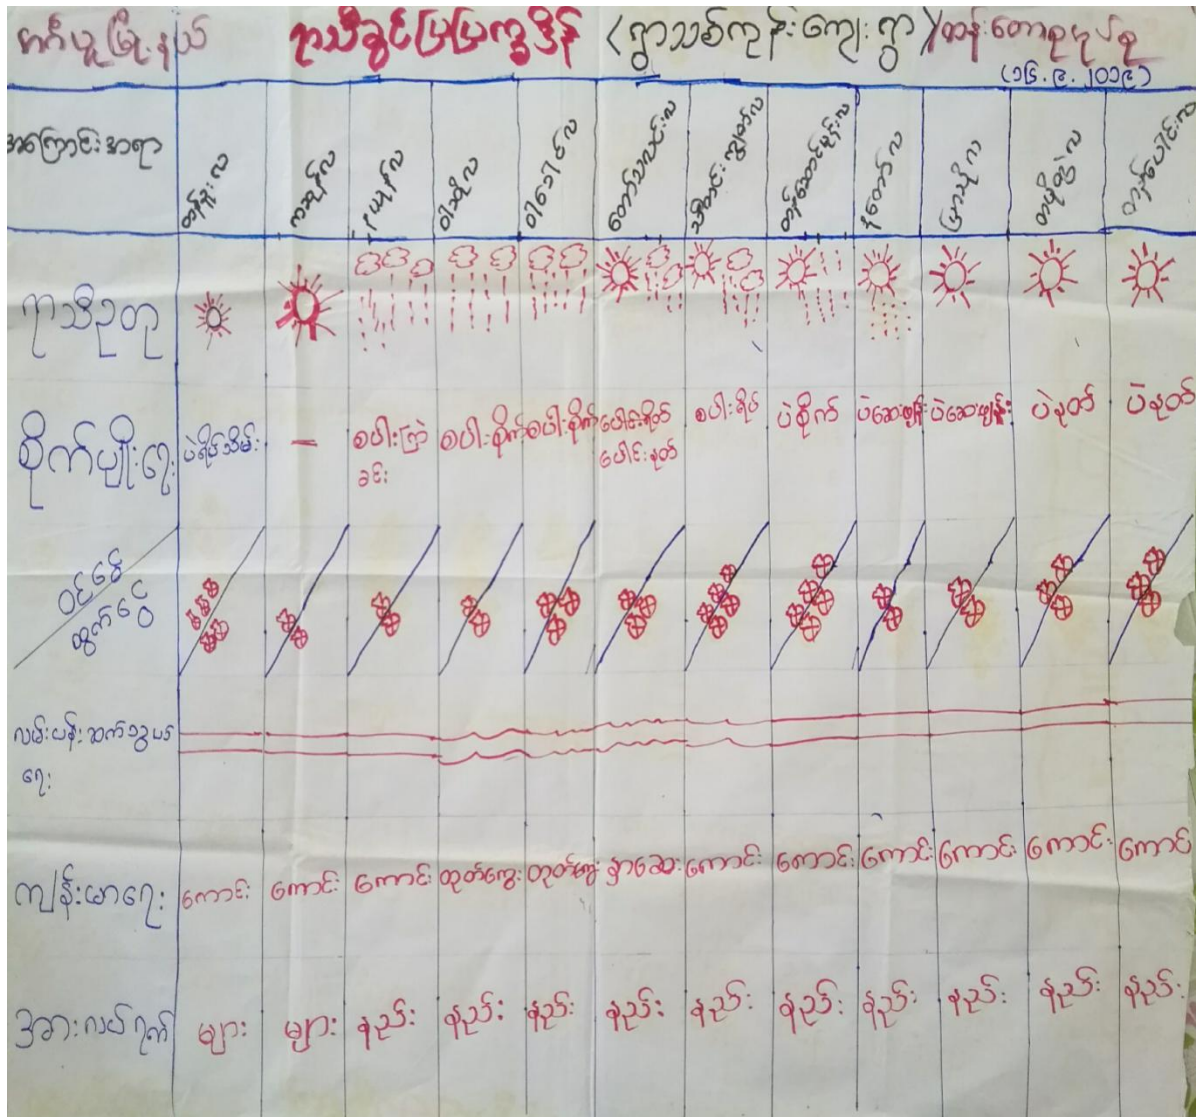 ဒဂုံယူမြို့နယ် ရာသီခွင်ပြပြက္ခဒိန် (ရွာသစ်ကုန်းကျေးရွာ)
(၁၆.၉.၂၀၁၉)
အကြောင်းအရာ တန်ခူးလ ကဆုန်လ နယုန်လ ဝါဆိုလ ဝါခေါင်လ တော်သလင်းလ သီတင်းကျွတ်လ တန်ဆောင်မုန်းလ နတ်တော်လ ပြာသိုလ တပို့တွဲလ တပေါင်းလ
ရာသီဥတု
စိုက်ပျိုးရေး ပဲရိပ်သိမ်း — စပါးကြဲ စပါးစိုက် စပါးစိုက် ပေါင်းရိတ် စပါးရိပ် ပဲစိုက် ပဲဆေးဖျန်း ပဲဆေးဖျန်း ပဲနုတ် ပဲနုတ်
ခင်း ပေါင်းနုတ်
ဝင်ငွေ
ထွက်ငွေ
လမ်းပန်းဆက်သွယ်
ရေး
ကျန်းမာရေး ကောင်း ကောင်း ကောင်း တုတ်ကွေး တုတ်ကွေး နှာစေး ကောင်း ကောင်း ကောင်း ကောင်း ကောင်း ကောင်း
အားလပ်ရက် များ များ နည်း နည်း နည်း နည်း နည်း နည်း နည်း နည်း နည်း နည်း